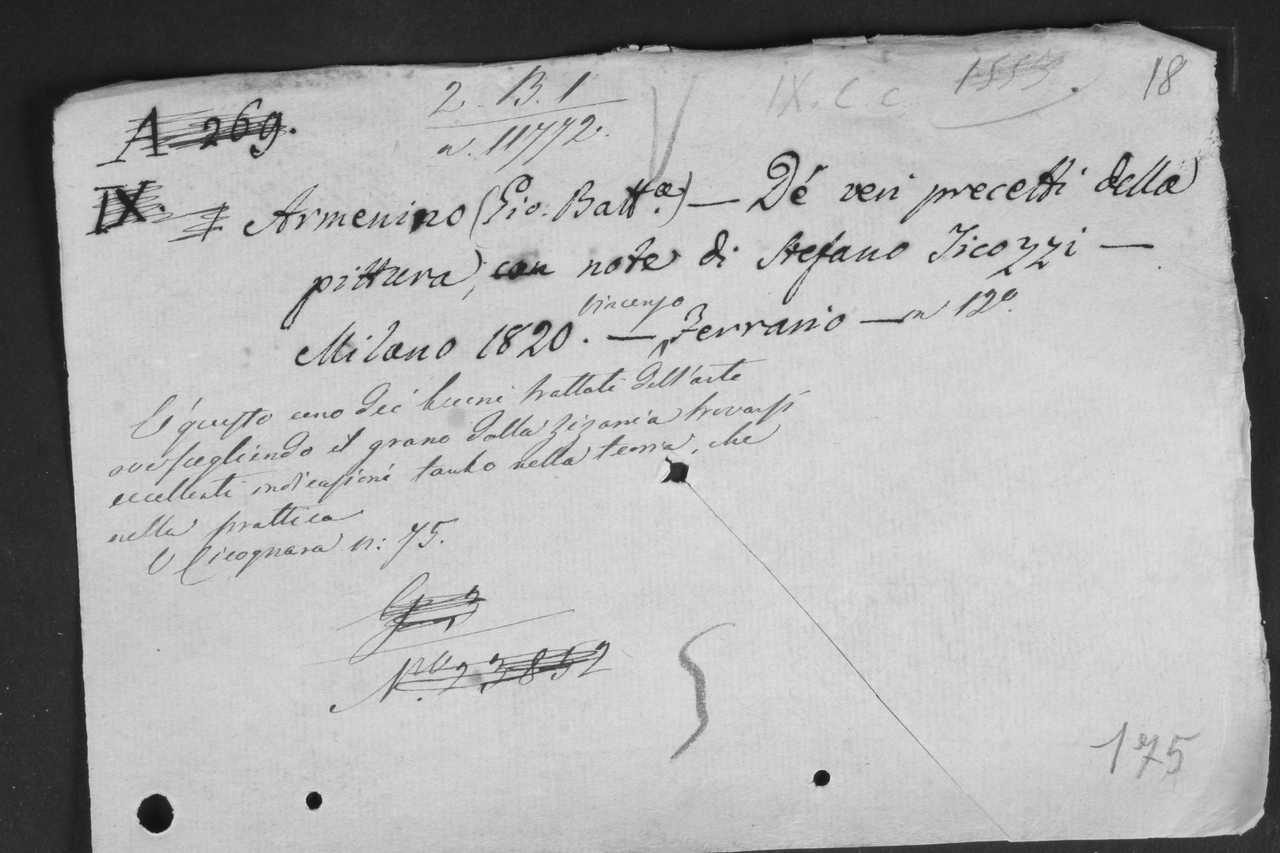 2. B. 1
n. 11772.
IX. C c 1555. 18
A 269.
IX. Armenino (Gio. Batt.a) — De' veri precetti della
pittura, con note di Stefano Ticozzi —
Milano 1820. — Vincenzo Ferrario — in 12o.
E' questo uno dei buoni trattati dell'arte
ove scegliendo il grano dalla zizania trovansi
eccellenti indicazioni tanto nella teoria, che
nella prattica
V Cicognara n: 75.
No. 23852
175